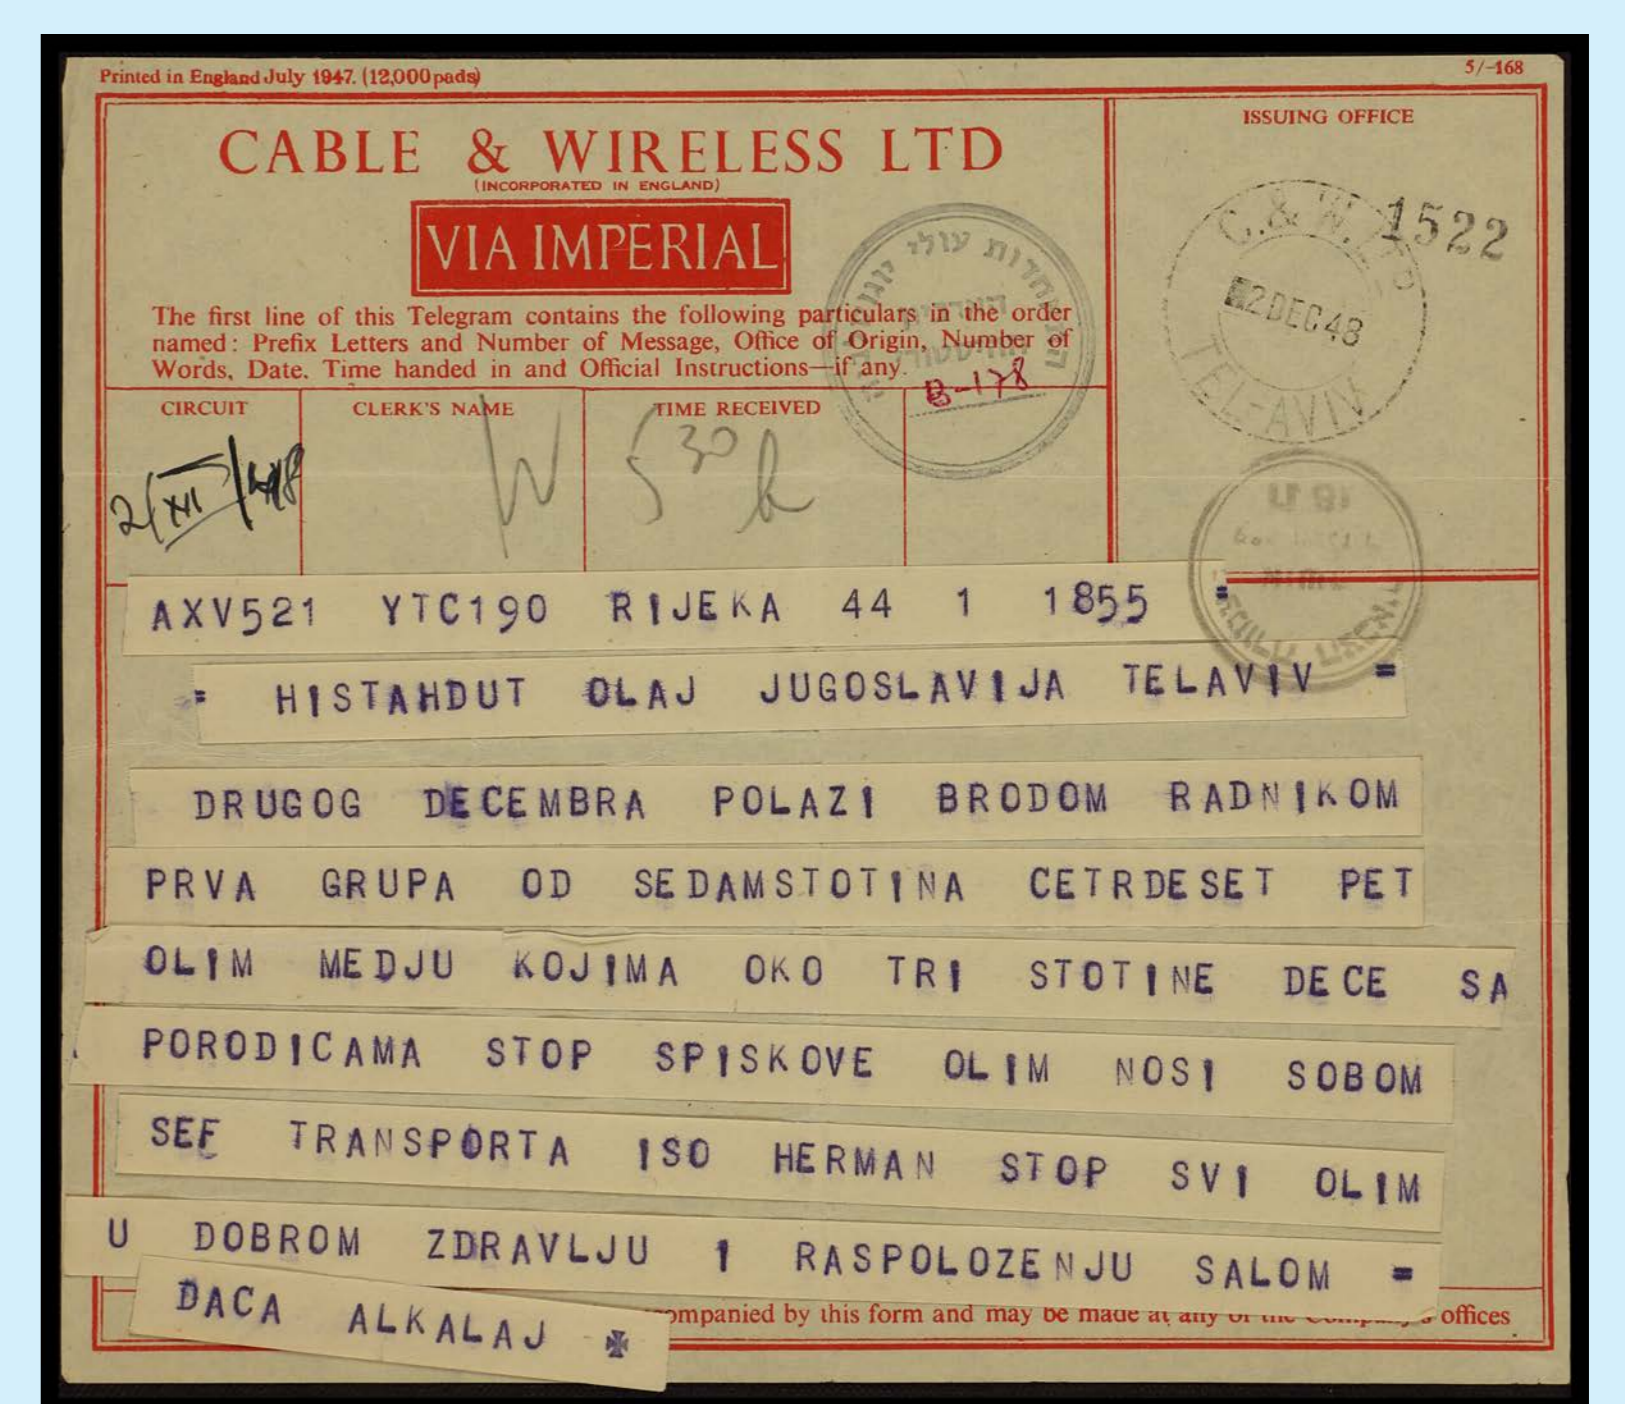 Printed in England July 1947. (12,000 pads)
5/-168
CABLE & WIRELESS LTD
(INCORPORATED IN ENGLAND)
VIA IMPERIAL
ISSUING OFFICE
C. & W. LTD
1522
2 DEC 48
TEL-AVIV
The first line of this Telegram contains the following particulars in the order
named: Prefix Letters and Number of Message, Office of Origin, Number of
Words, Date, Time handed in and Official Instructions—if any.
B-178
CIRCUIT CLERK'S NAME TIME RECEIVED
2/XII/48
5 30 h
AXV521 YTC190 RIJEKA 44 1 1855 =
= HISTAHDUT OLAJ JUGOSLAVIJA TELAVIV =
DRUGOG DECEMBRA POLAZI BRODOM RADNIKOM
PRVA GRUPA OD SEDAMSTOTINA CETRDESET PET
OLIM MEDJU KOJIMA OKO TRI STOTINE DECE SA
PORODICAMA STOP SPISKOVE OLIM NOSI SOBOM
SEF TRANSPORTA ISO HERMAN STOP SVI OLIM
U DOBROM ZDRAVLJU I RASPOLOZENJU SALOM =
DACA ALKALAJ
ompanied by this form and may be made at any of the Company's offices